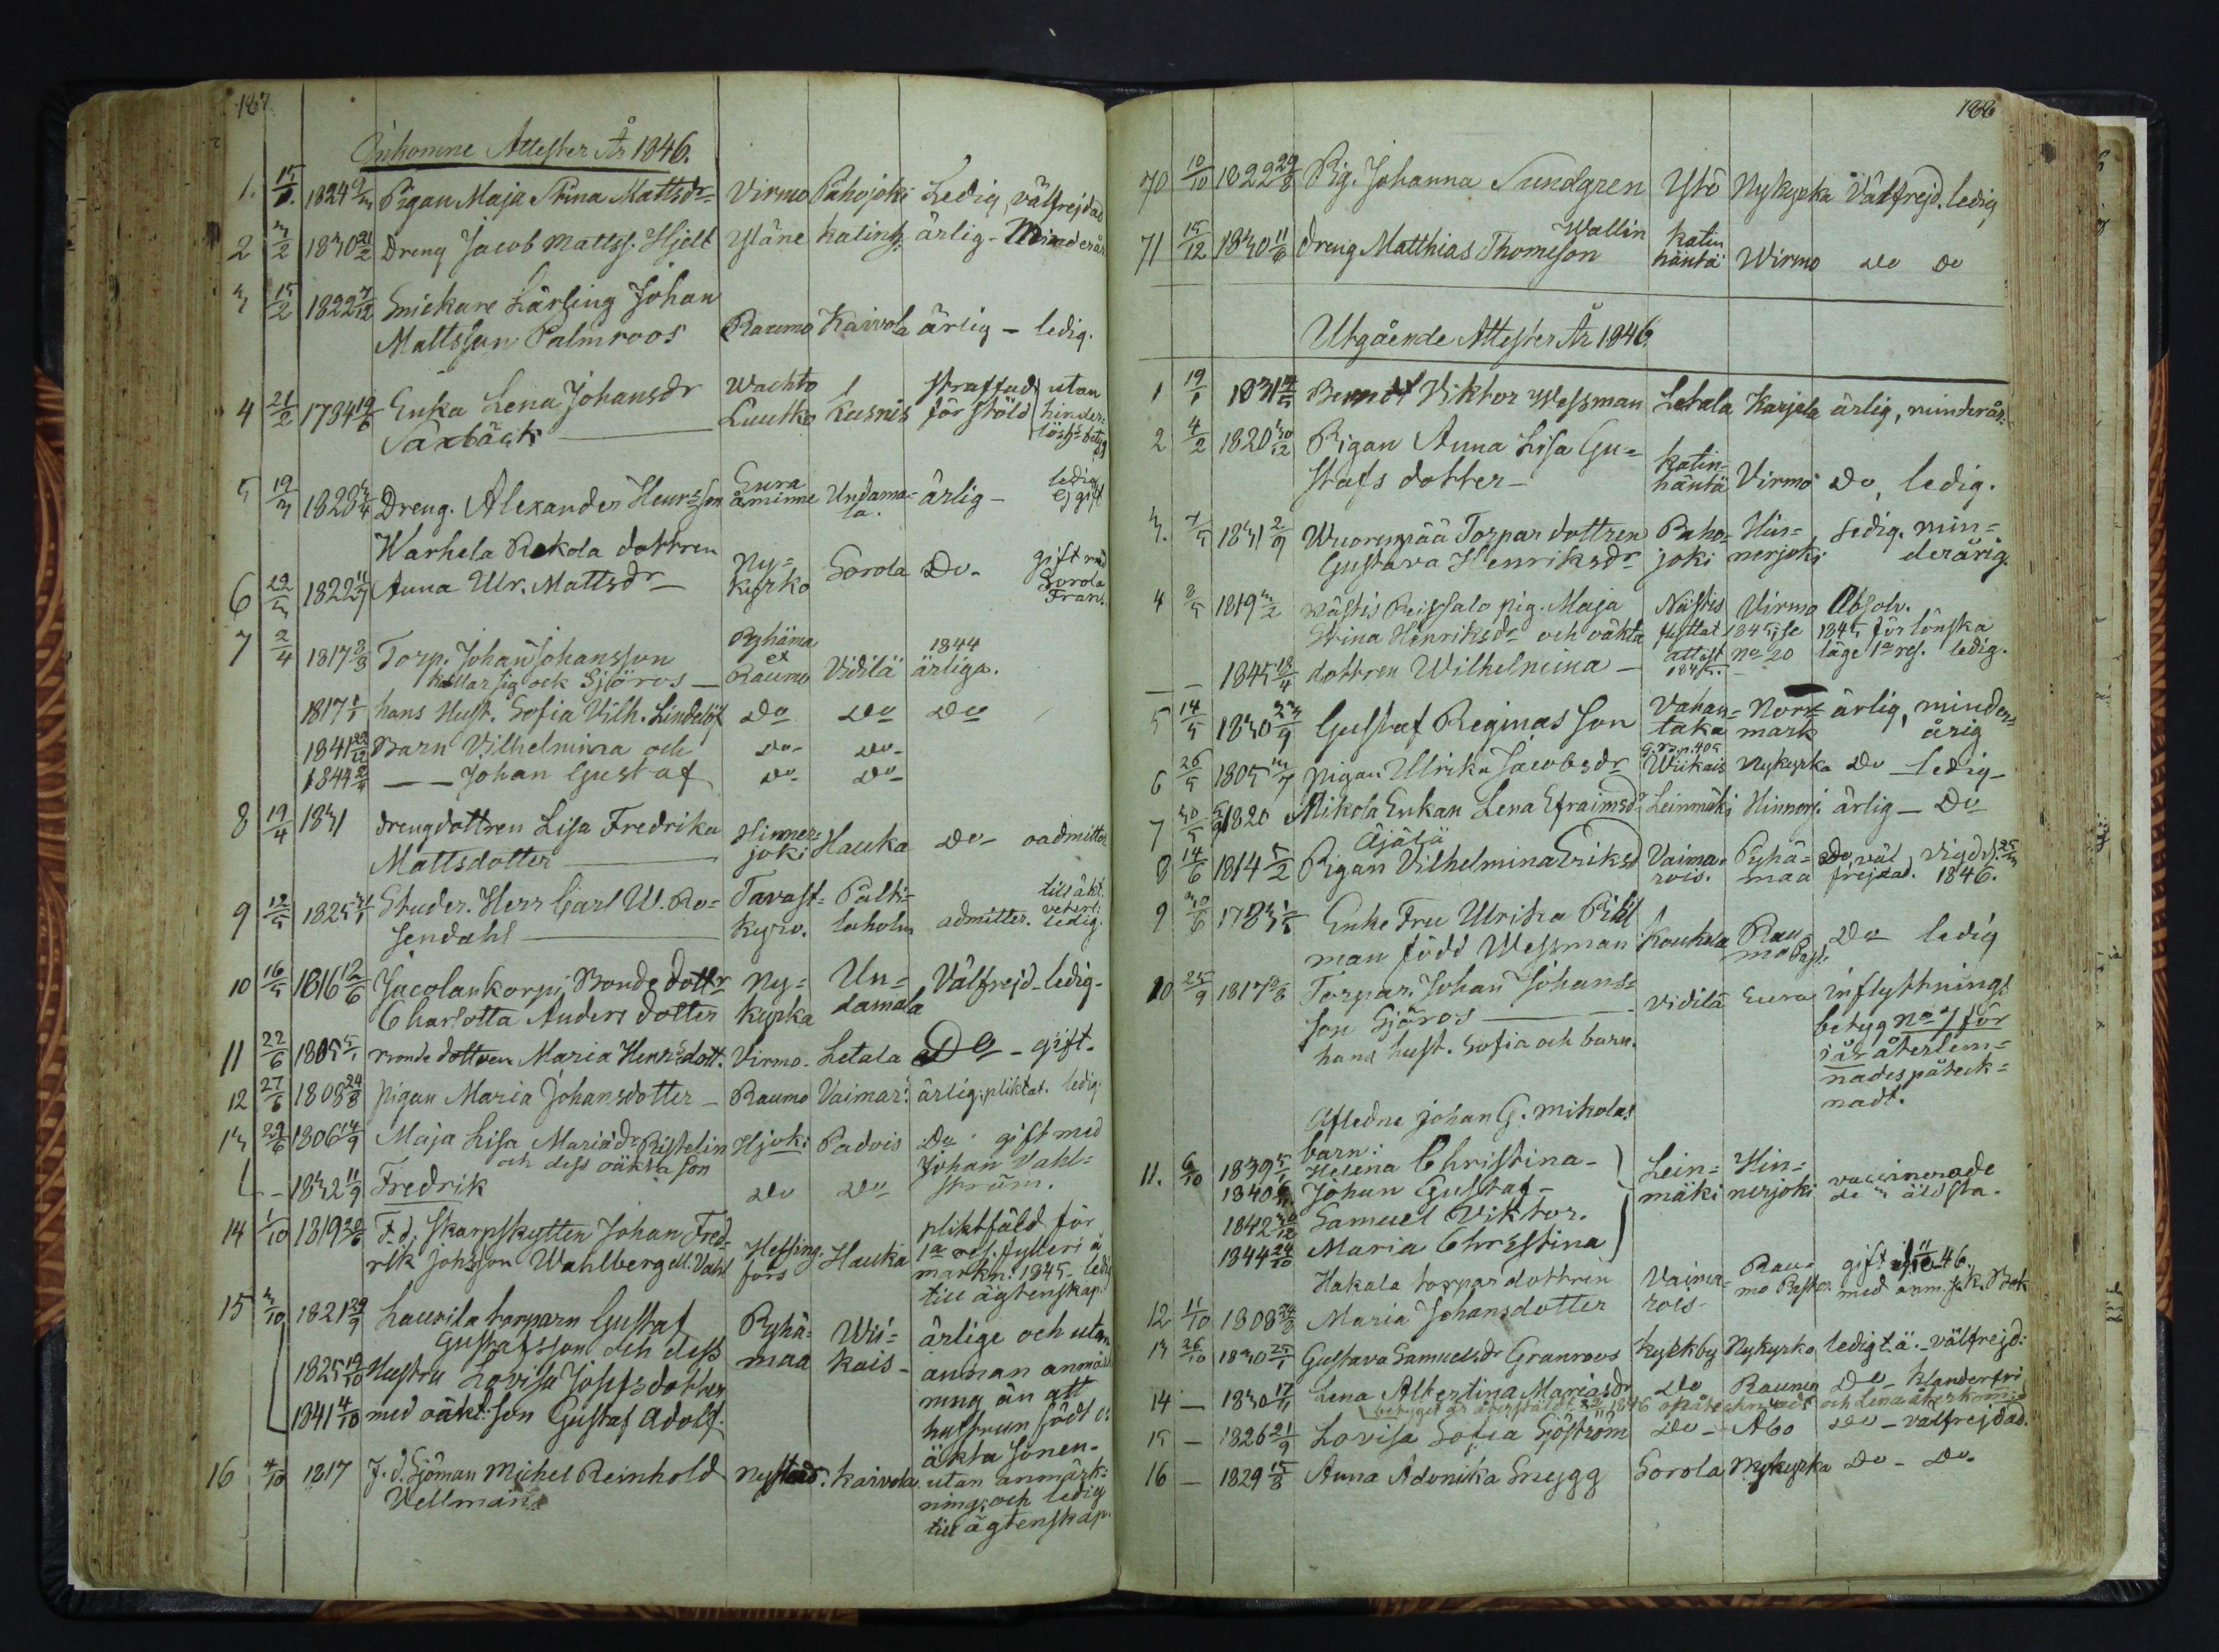 187.
Inkomne Attester År 1846.
1. 15/1. 1824 2/3 Pigan Maja Stina Mattsdr Virmo Pähojoki Ledig, välfrejdad
2 3/2 1830 21/2 Dreng Jacob Mattss. Hjelt Yläne Katinh. ärlig - Minderår
3 15/2 1822 7/12 Snickare Lärling Johan
Mattsson Palmroos Raumo Kaivola ärlig - ledig.
4 21/2 1784 19/6 Enka Lena Johansdr Wachto straffad utan
Saxbäck Luutko Kusnis för stöld hinder=
lösh:s betyg
5 19/3 1820 3/4 Dreng. Alexander Henrsson Eura åminne Undama=
la. ärlig - ledig
Ej gift
Warhela Rekola dottren
6 22/3 1822 11/7 Anna Ulr. Mattsdr Ny=
kyrko Sorola Do- gift med
Sorola
Frans.
7 2/4 1817 3/8 Torp. Johan Johansson Pyhäma
et
Raumo Vidilä 1844
ärliga.
kallar sig ock Sjöroos
1817 1/1 hans Hust. Sofia Vilh. Lindelöf Do Do Do
1841 22/12 Barn Vilhelmina och Do- Do-
1844 2/4 — — Johan Gustaf Do Do
8 19/4 1831 drengdottren Lisa Fredrika
Mattsdotter Hinner=
joki Hauka Do- oadmitter
9 12/5 1825 31/1 Studer. Herr Carl W. Ro=
sendahl Tavast=
kyro. Palti=
laholm admitter. till äkt.
veterl:
ledig.
10 16/5 1816 12/6 Jacolankorpi Bondedottr
Charlotta Anders dotter Ny=
kyrka Un=
damala Välfrejd - ledig-
11 22/6 1805 5/1 Bonde dottren Maria Henrsdott. Virmo. Letala Do - gift.
12 27/6 1808 24/8 pigan Maria Johansdotter - Raumo Vaimar: ärlig. pliktat. ledig.
13 29/6 1806 14/9 Maja Lisa Mariædr Ristelin Hjoki Padois Do. gift med
och dess oäkta Son Johan Vahl=
ström.
- 1832 11/9 Fredrik Do Do
14 1/10 1819 F.d. Skarpskytten Johan Fred=
rik Johsson Wahlberg ell. Vahl Helsing=
fors Hauka pliktfäld för
1a res. fylleri å
markn: 1845. ledig
till ägtenskap.
15 3/10 1821 29/9 Laurila torparn Gustaf
Gustafsson och dess Pyhä=
maa Wii=
kais- ärlige och utan
annan anmärk
ning än att
hustrun födt o
äkta Sonen-
1825 19/10 Hustru Lovisa Josefsdotter
1841 4/10 med oäkt: Son Gustaf Adolf.
16 4/10 1817 F.d. Sjöman Michel Reinhold
Vellman Nystad. Kaivola utan anmärk=
ning; och ledig
till ägtenskap.
188
70 10/10 1822 29/8 Pig. Johanna Sundgren Ytö Nykyrka Välfrejd. ledig
71 15/12 1830 11/6 dreng Matthias Thomeson Wallin Katin
häntä Wirmo Do Do
Utgående Attester År 1846.
1 19/1 1831 Berndt Viktor Wessman Letala Karjela ärlig, minderår:
2 4/2 1820 30/12 Pigan Anna Lisa Gu=
stafs dotter - Katin-
häntä Virmo Do, ledig.
3. 7/5 1831 2/9 Wuorenpää Torpardottren
Gustava Henriksdr Paho=
joki Hin=
nerjoki Ledig. min=
derårig.
4 8/5 1819 3/2 Nästis Reissalo pig. Maja
Stina Henriksdr och oäkta Nästis Virmo Absolv.
flyttat 1845, se 1845 för lönska
attest No 20 läge 1a res. ledig.
1845.
— — 1845 18/4 dottren Wilhelmina —
5 14/5 1830 23/9 Gustaf Reginas Son Vahan=
taka Norr=
mark ärlig, minder=
årig
6 26/5 1805 3/7 Pigan Ulrika Jacobsdr G.B.p.405
Wiikais Nykyrka Do - ledig -
7 30/5 1820 Mikola Enkan Lena Efraimsdr Leinmäki Hinnerj. ärlig - Do
Äjälä
8 14/6 1814 5/2 Pigan Vilhelmina Eriksd Vaima=
rois. Pyhä=
maa Do, väl
frejdad. vigd d. 25/3
1846.
9 30/6 1783 Enke Fru Ulrika Pihl
man född Wessman Koukela Rau=
mo Past. Do ledig
10 25/9 1817 3/8 Torpar. Johan Johans=
son Sjöros
hans hust. Sofia och barn. Vidilä Eura inflyttnings
betyg No 7 för
i år återlem=
nades påteck=
nadt.
Afledne Johan G. Mikolas
barn:
11. 6/10 1839 5/1 Helena Christina -
1840 Johan Gustaf -
1842 30/12 Samuel Viktor.
1844 24/10 Maria Christina Lein=
mäki Hin=
nerjoki vaccinerade
de 3 äldsta.
Hakala torpar dottren
12 11/10 1808 24/8 Maria Johansdotter Vaima=
rois- Rau=
mo Past. gift 11/10 46.
med anm. i K. Bok
13 26/10 1830 25/1 Gustava Samuelsdr Granroos Kyrkby Nykyrko ledig t.ä. - välfrejd:
14 — 1830 17/11 Lena Albertina Mariædr Do Raumo Do - klanderfri
betyget är återstäldt 1846 och Lena återkom:
15 — 1826 21/9 Lovisa Sofia Sjöström Do - Åbo Do - välfrejdad.
16 — 1829 15/8 Anna Adonika Snygg Sorola Nykyrka Do - Do-